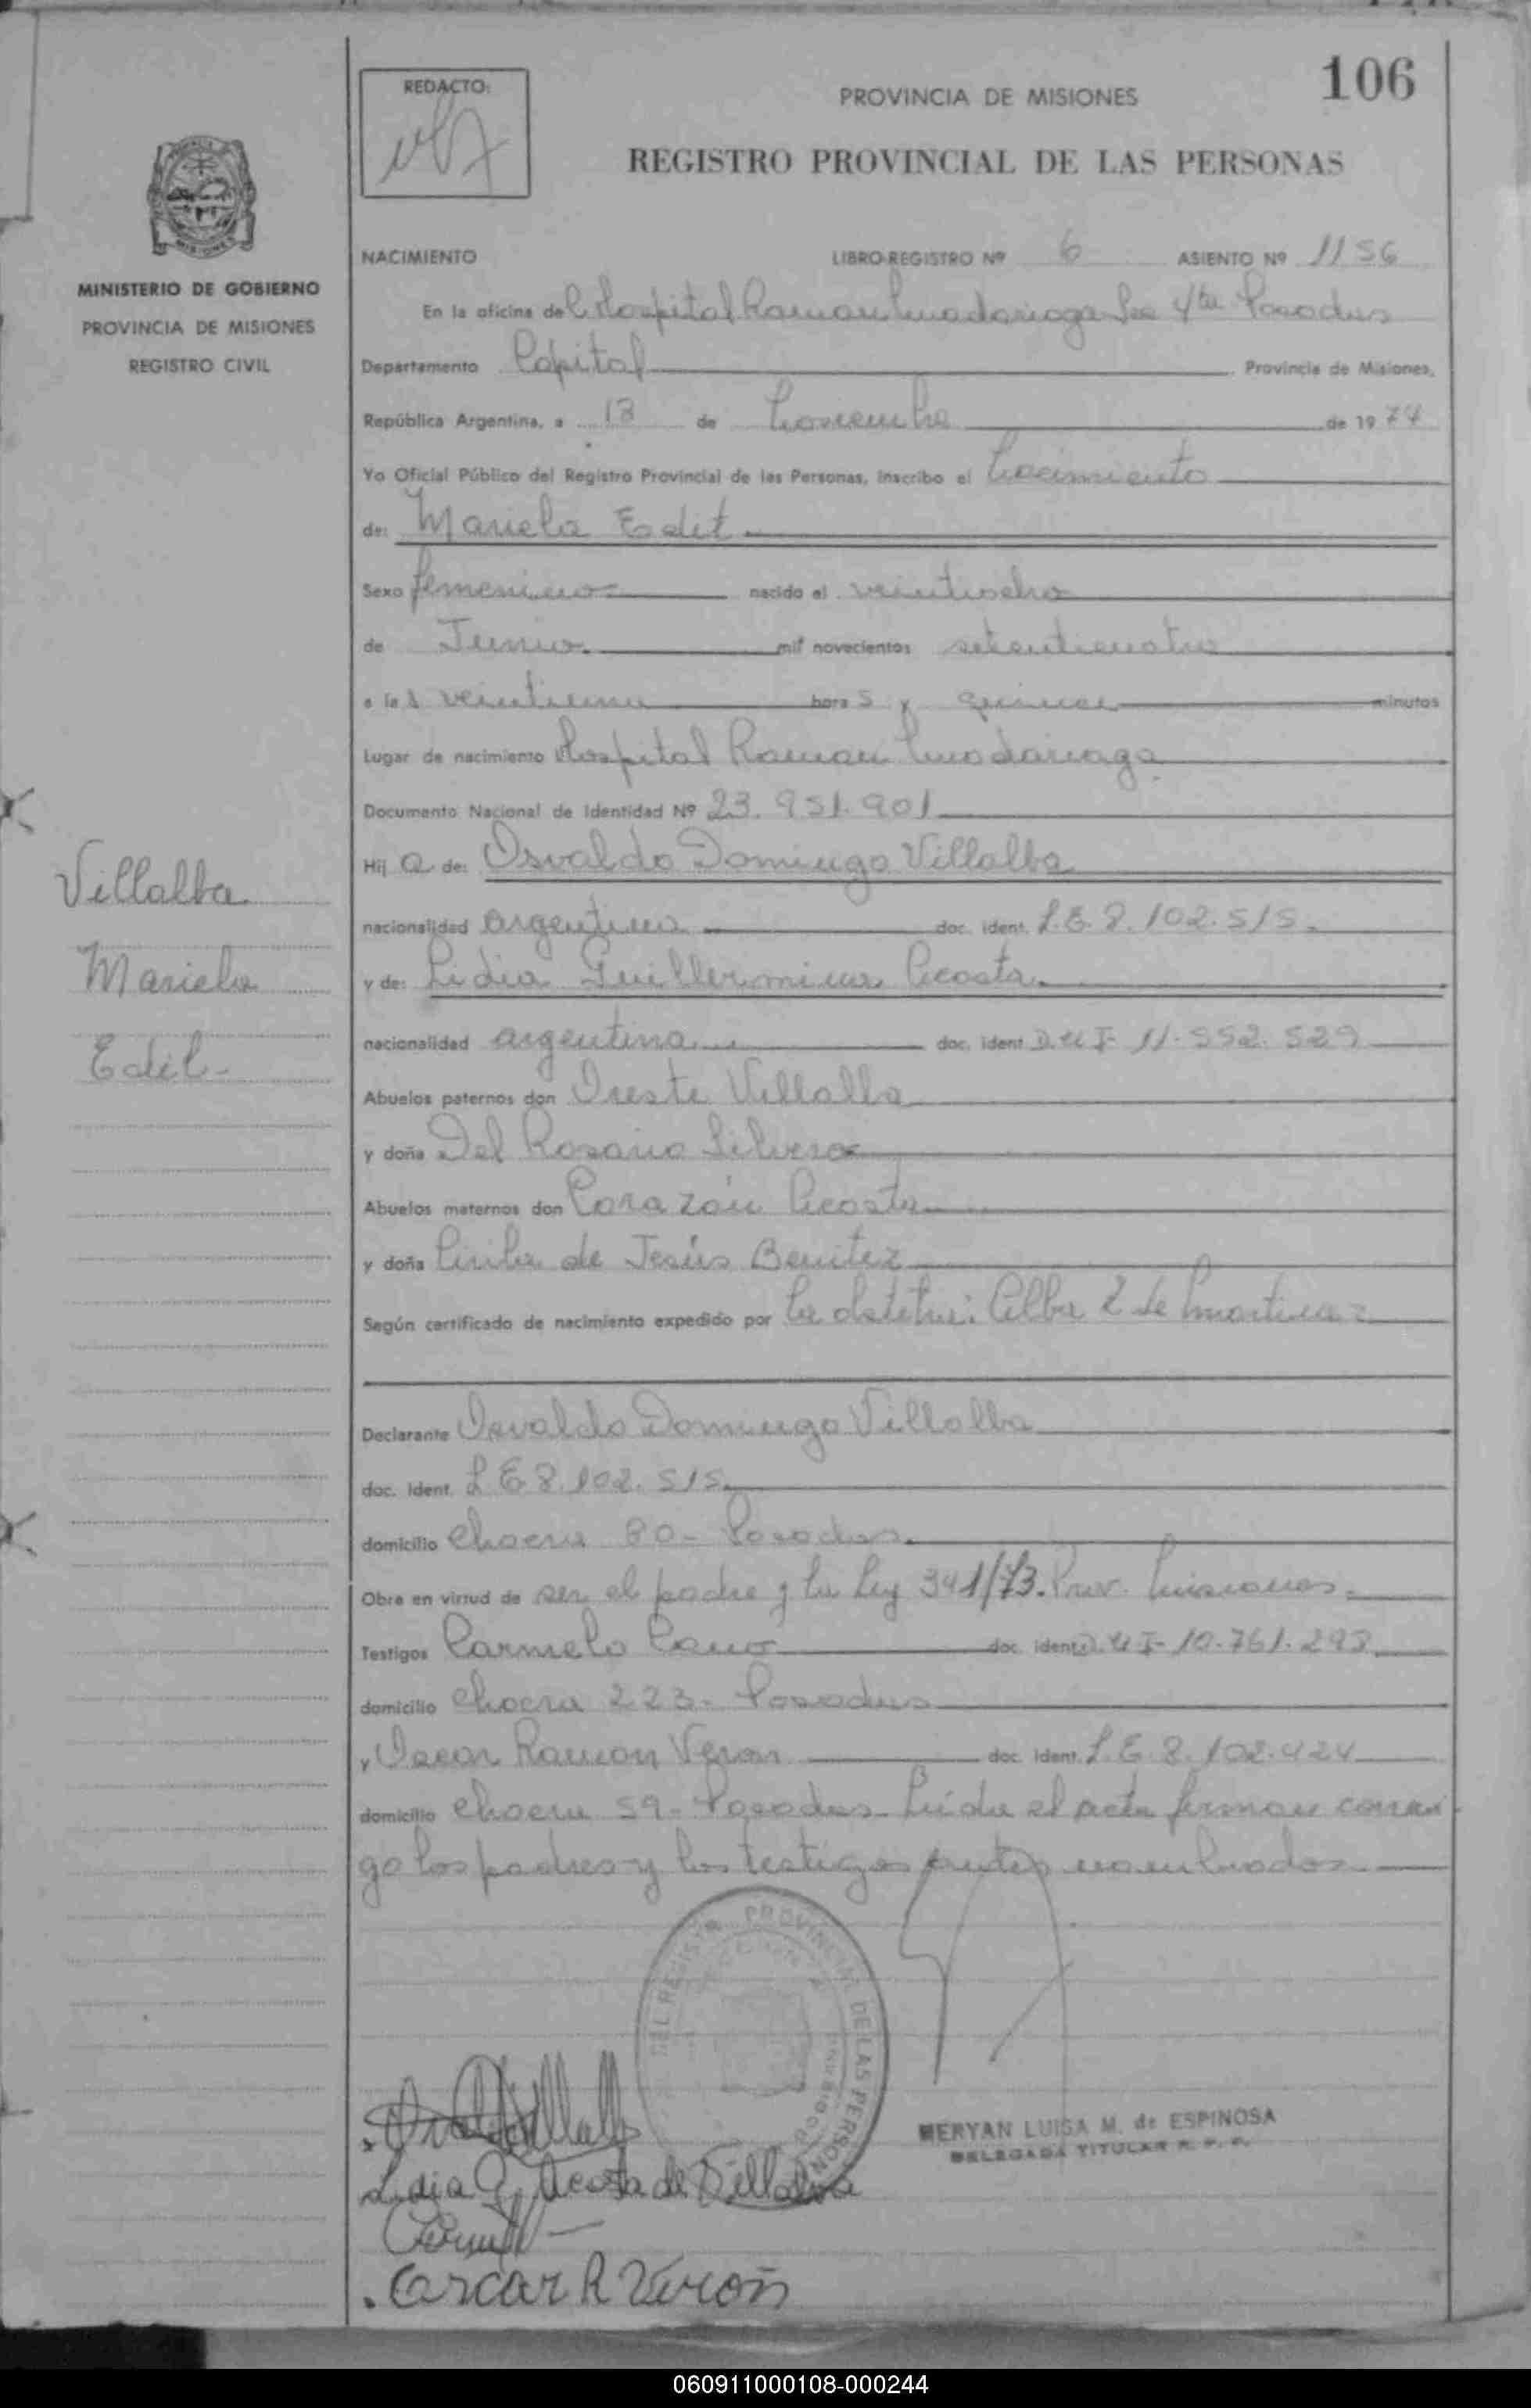 106
REDACTO:
PROVINCIA DE MISIONES
REGISTRO PROVINCIAL DE LAS PERSONAS
MISIONES
MINISTERIO DE GOBIERNO
PROVINCIA DE MISIONES
REGISTRO CIVIL
NACIMIENTO LIBRO-REGISTRO Nº 6 ASIENTO Nº 1156
En la oficina del Hospital Ramon Madariaga Sec 4ta Posadas
Departamento Capital Provincia de Misiones,
República Argentina, a 13 de Noviembre de 1974
Yo Oficial Público del Registro Provincial de las Personas, inscribo el Nacimiento
de: Mariela Edit
Sexo femenino nacido el veintiocho
de Junio mil novecientos setenticuatro
a las veintiuna horas y quince minutos
Lugar de nacimiento Hospital Ramon Madariaga
Documento Nacional de Identidad Nº 23.951.901
Hij a de: Osvaldo Domingo Villalba
Villalba
Mariela
Edit-
nacionalidad argentina doc. ident. L.E. 8.102.515
y de: Lidia Guillermina Acosta
nacionalidad argentina doc. ident D.U.I- 11.552.529
Abuelos paternos don Oreste Villalba
y doña Del Rosario Silvero
Abuelos maternos don Corazón Acosta
y doña Cirila de Jesús Benitez
Según certificado de nacimiento expedido por la obstetra: Alba Z de Martinez
Declarante Osvaldo Domingo Villalba
doc. ident. L E 8.102.515
domicilio Chacra 80- Posadas.
Obra en virtud de ser el padre y la Ley 341/73. Prov. Misiones.
Testigos Carmelo Cano doc. ident D.U.I- 10.761.298
domicilio Chacra 223- Posadas
y Oscar Ramon Veron doc. ident. L.E. 8.102.424
domicilio Chacra 59- Posadas- Leida el acta firman conmi
go los padres y los testigos antes nombrados
DEL REGISTRO PROVINCIAL DE LAS PERSONAS
MERYAN LUISA M. de ESPINOSA
DELEGADA TITULAR R. P. P.
Lidia G. Acosta de Villalba
Oscar R Verón
060911000108-000244